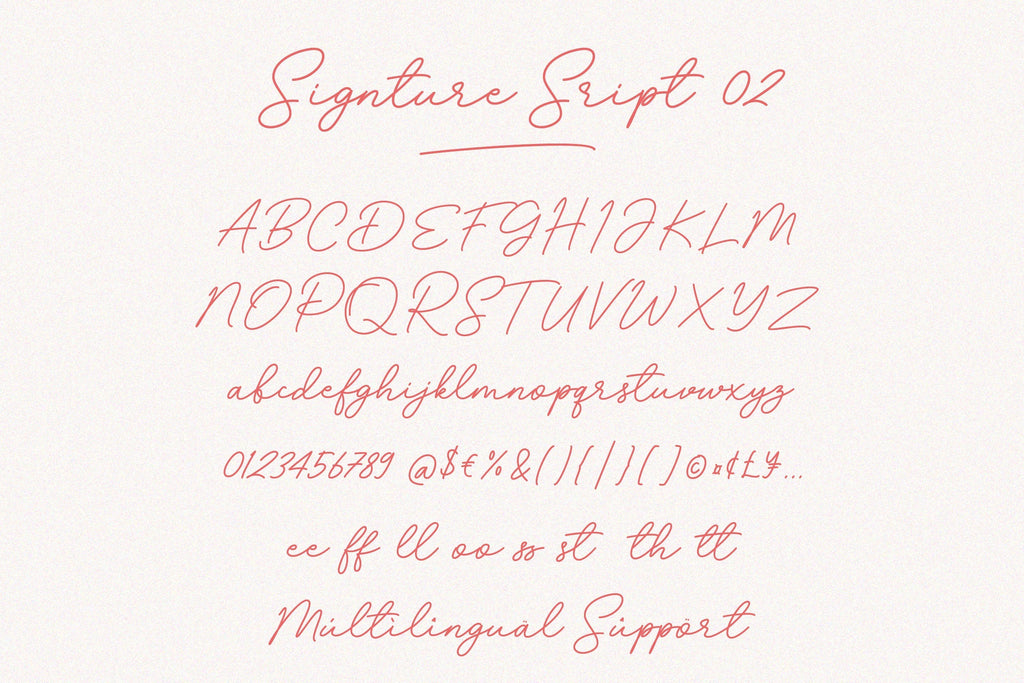 Signture Sript 02
ABCDEFGHIJKLM
NOPQRSTUVWXYZ
abcdefghijklmnopqrstuvwxyz
0123456789 @$€%&(){|}[]©¤¢£¥...
ee ff ll oo ss st th tt
Múltilînguäl Sûppört